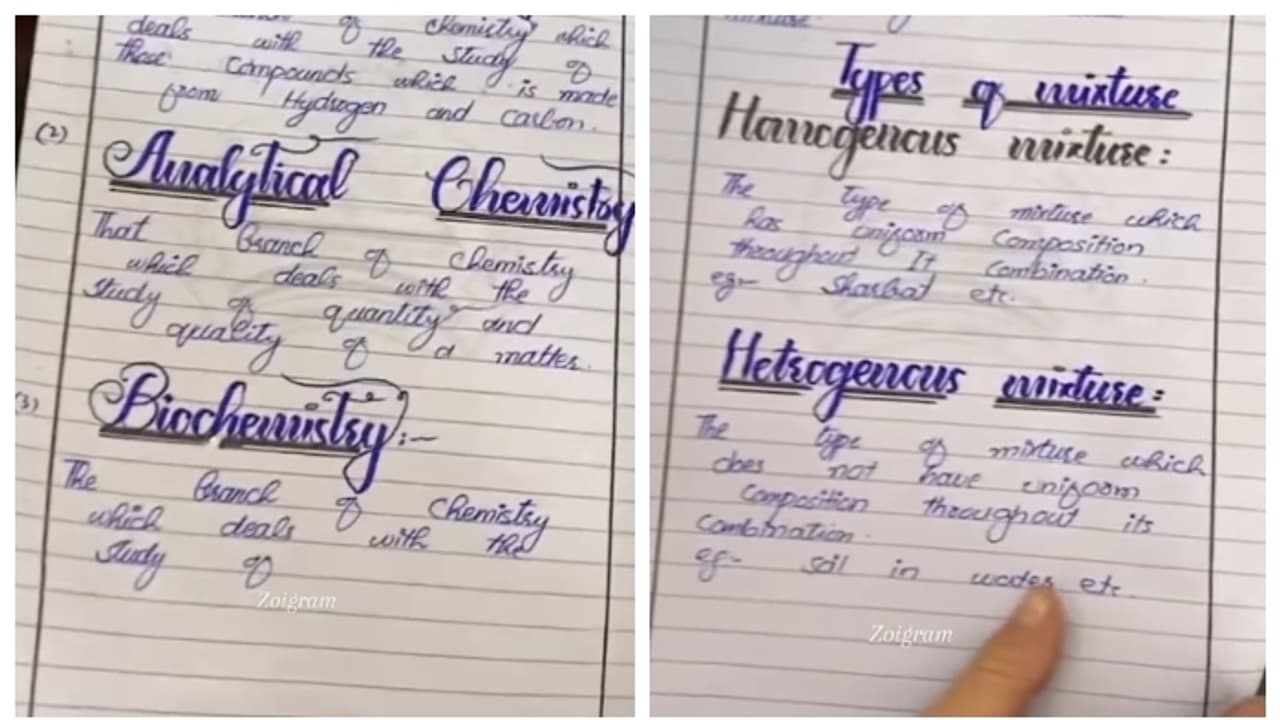 of Chemistry which
deals with the study of
those Compounds which is made
from Hydrogen and carbon.
(2) Analytical Chemistry
That branch of chemistry
which deals with the
study of quantity and
quality of a matter.
(3) Biochemistry:-
The branch of chemistry
which deals with the
study of
Zoigram
mixture
Types of mixture
Homogenous mixture:
The type of mixture which
has uniform Composition
throughout It combination.
eg- Sharbat etc.
Hetrogenous mixture:
The type of mixture which
does not have uniform
Composition throughout its
combination.
eg- soil in etc.
Zoigram